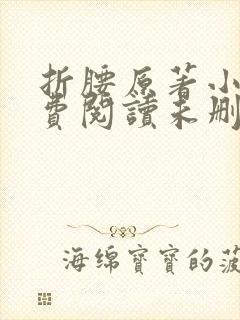 折腰原著小
費閱讀未刪
海绵寶寶的菠